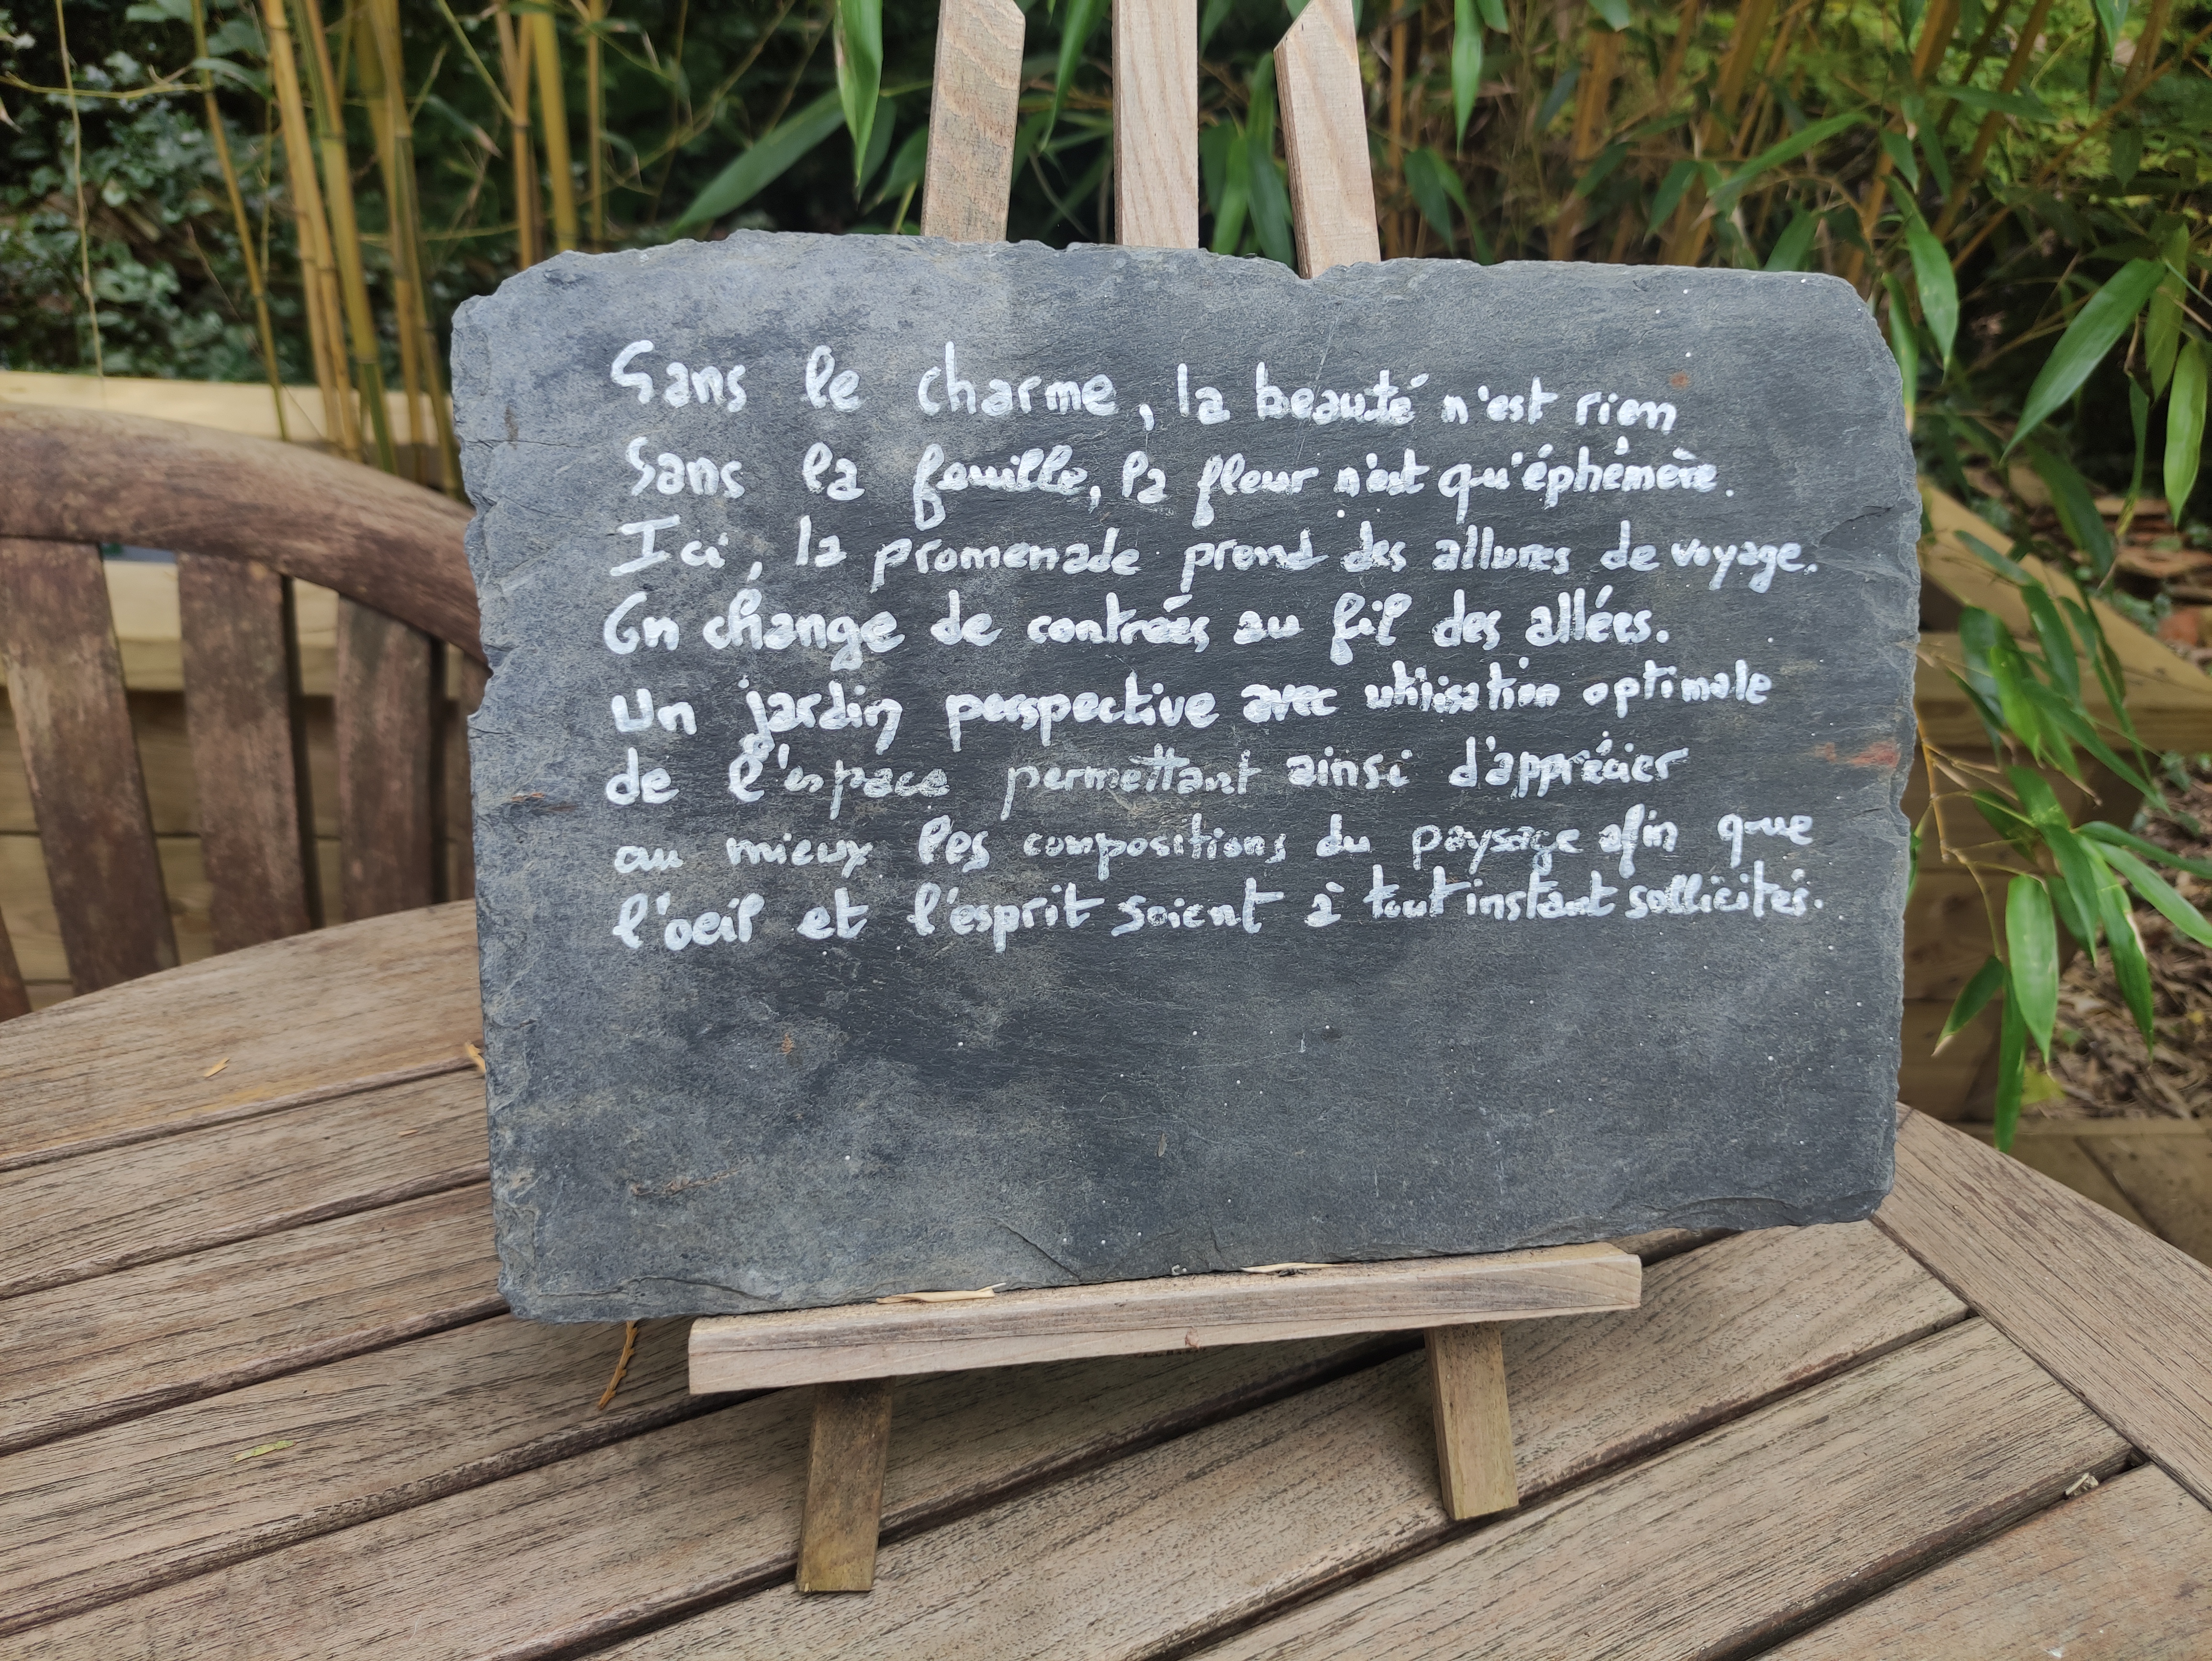 Sans le charme, la beauté n'est rien
Sans la feuille, la fleur n'est qu'éphémère.
Ici, la promenade prend des allures de voyage.
On change de contrées au fil des allées.
Un jardin perspective avec utilisation optimale
de l'espace permettant ainsi d'apprécier
au mieux les compositions du paysage afin que
l'oeil et l'esprit soient à tout instant sollicités.